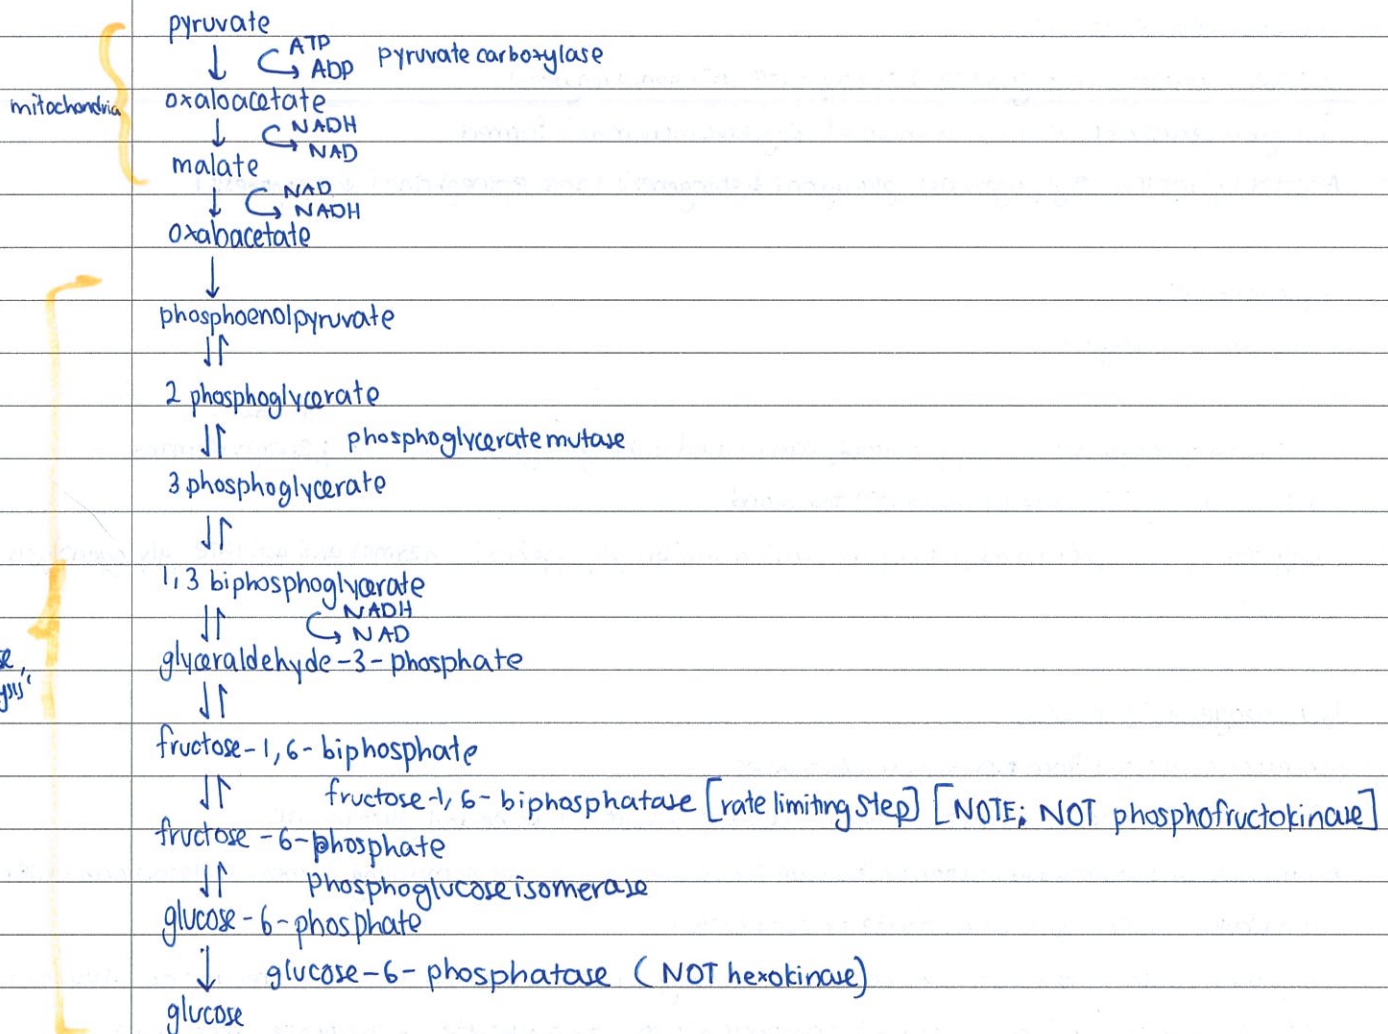 pyruvate
ATP
ADP
pyruvate carboxylase
mitochondria
oxaloacetate
NADH
NAD
malate
NAD
NADH
oxaloacetate
phosphoenolpyruvate
2 phosphoglycerate
phosphoglycerate mutase
3 phosphoglycerate
1,3 biphosphoglycerate
NADH
NAD
glyceraldehyde-3-phosphate
fructose-1,6-biphosphate
fructose-1,6-biphosphatase [rate limiting step] [NOTE: NOT phosphofructokinase]
fructose-6-phosphate
phosphoglucose isomerase
glucose-6-phosphate
glucose-6-phosphatase (NOT hexokinase)
glucose